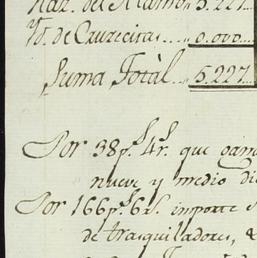 Haz. del Alamo 5.227
Yd. de Cruzeiras.... 0.000...
Suma Totàl... 5.227...
Por 38p.s 4r.s que
nueve y medio
Por 166p.s 6r.s importe
de trasquiladores, &